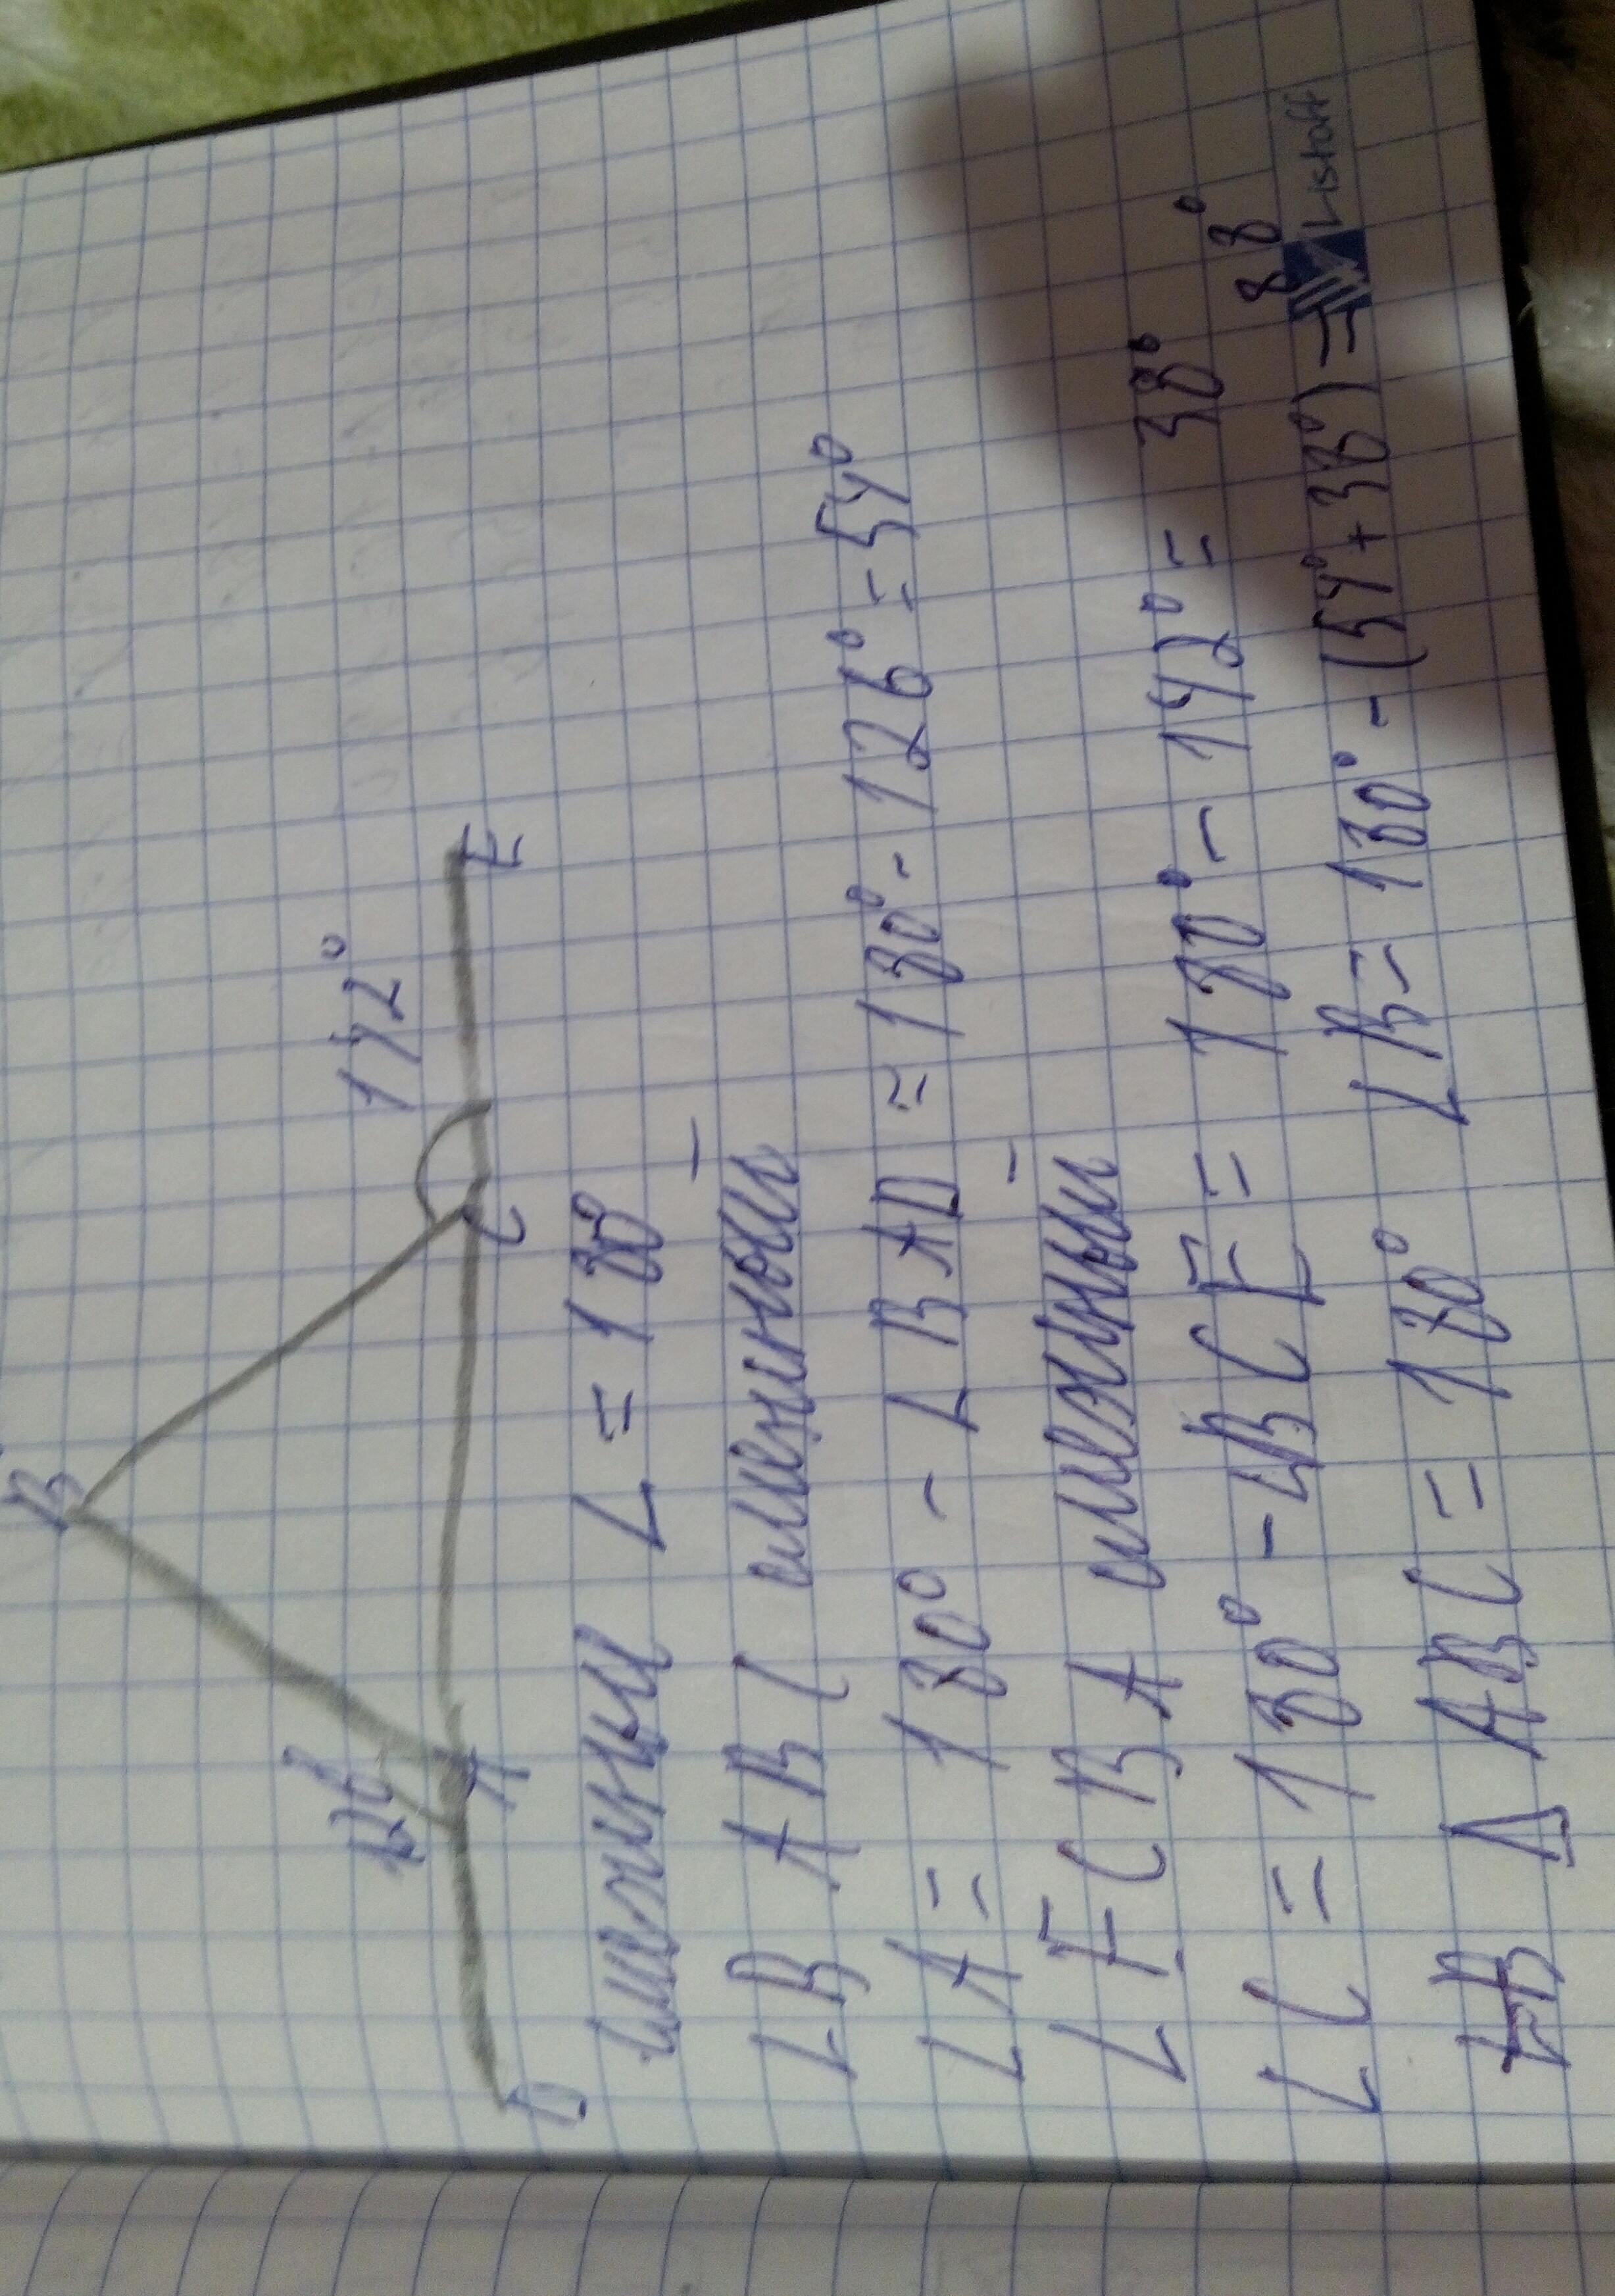 B
126 142°
D A C E
смежный ∠ = 180
∠BABC смежный -
∠A = 180° - ∠BAD = 180° - 126° = 54°
∠ECBA смежный -
∠C = 180° - ∠BCE = 180° - 142° = 38°
∠B ΔABC = 180° ∠B = 180° - (54° + 38°) = 88°
Listoff